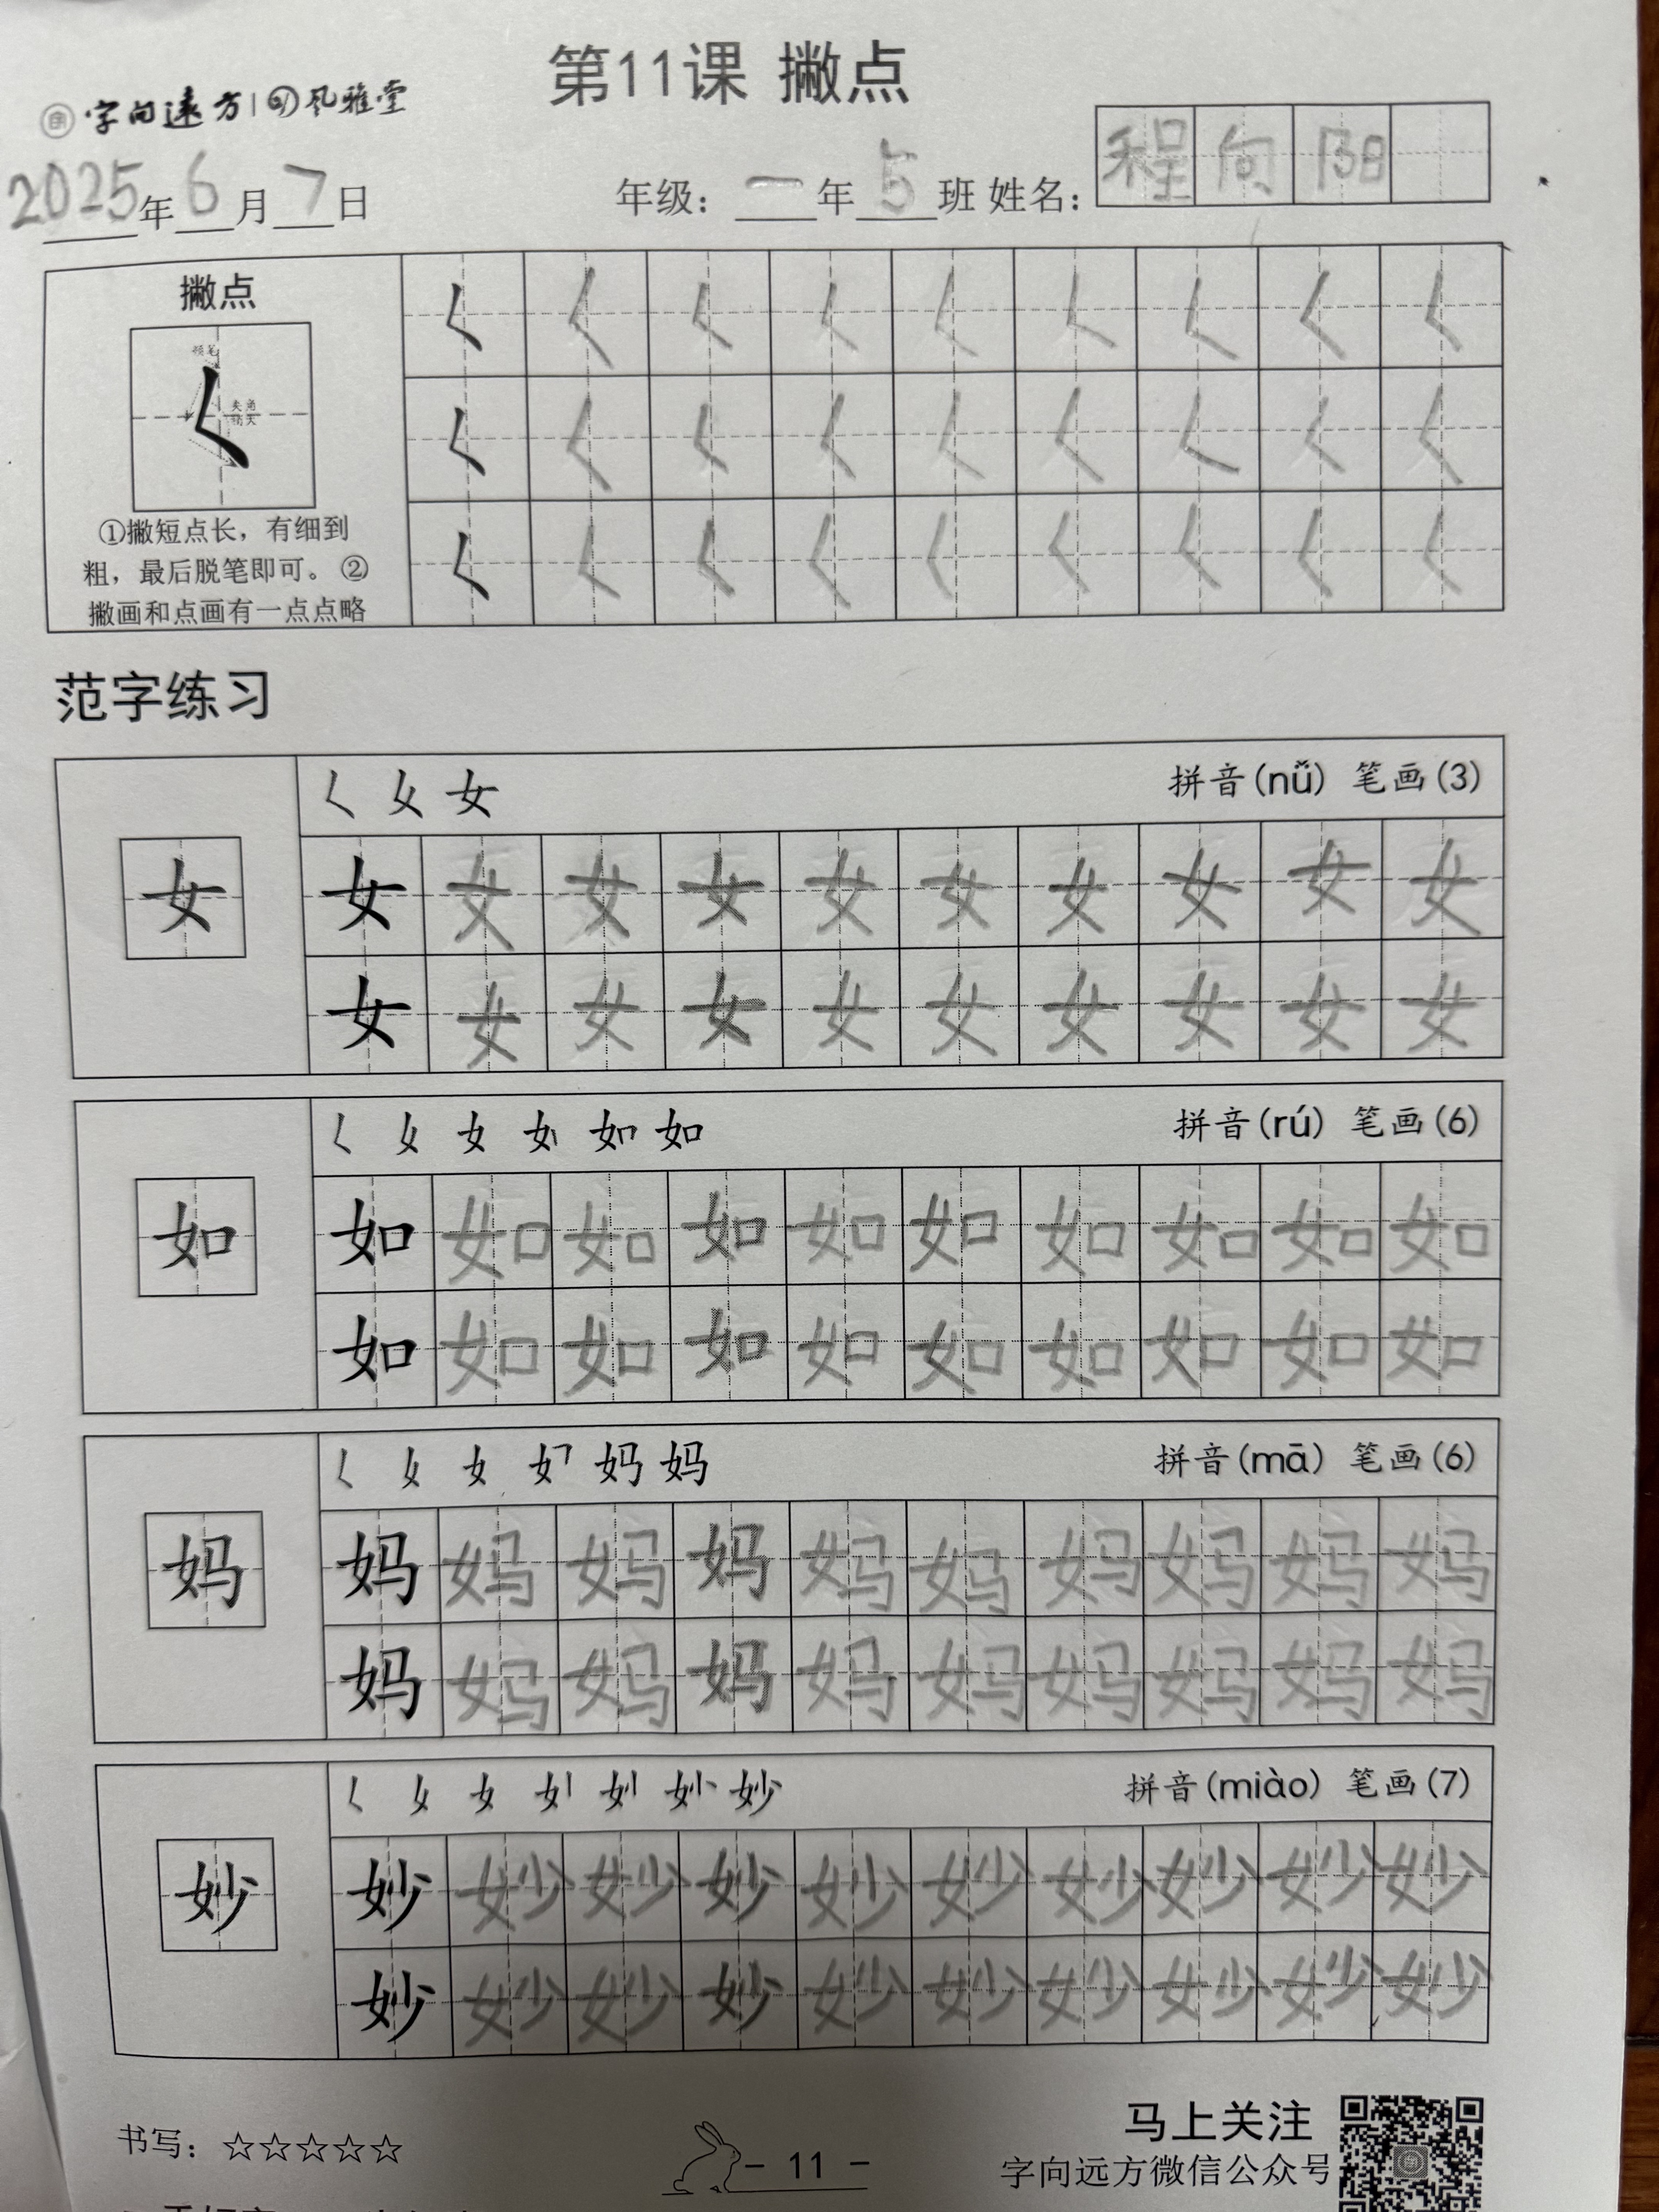 第11课 撇点
字向远方 | 风雅堂
2025年6月7日 年级：一年5班 姓名：程向阳
撇点
顿笔
夹角
稍大
①撇短点长，有细到
粗，最后脱笔即可。②
撇画和点画有一点点略
𡿨 𡿨 𡿨 𡿨 𡿨 𡿨 𡿨 𡿨 𡿨
𡿨 𡿨 𡿨 𡿨 𡿨 𡿨 𡿨 𡿨 𡿨
𡿨 𡿨 𡿨 𡿨 𡿨 𡿨 𡿨 𡿨 𡿨
范字练习
女 拼音(nǚ) 笔画(3)
女
女 女 女 女 女 女 女 女 女 女
女 女 女 女 女 女 女 女 女 女
如 拼音(rú) 笔画(6)
如
如 如 如 如 如 如 如 如 如 如
如 如 如 如 如 如 如 如 如 如
妈 拼音(mā) 笔画(6)
妈
妈 妈 妈 妈 妈 妈 妈 妈 妈 妈
妈 妈 妈 妈 妈 妈 妈 妈 妈 妈
妙 拼音(miào) 笔画(7)
妙
妙 妙 妙 妙 妙 妙 妙 妙 妙 妙
妙 妙 妙 妙 妙 妙 妙 妙 妙 妙
书写：☆☆☆☆☆
- 11 -
马上关注
字向远方微信公众号